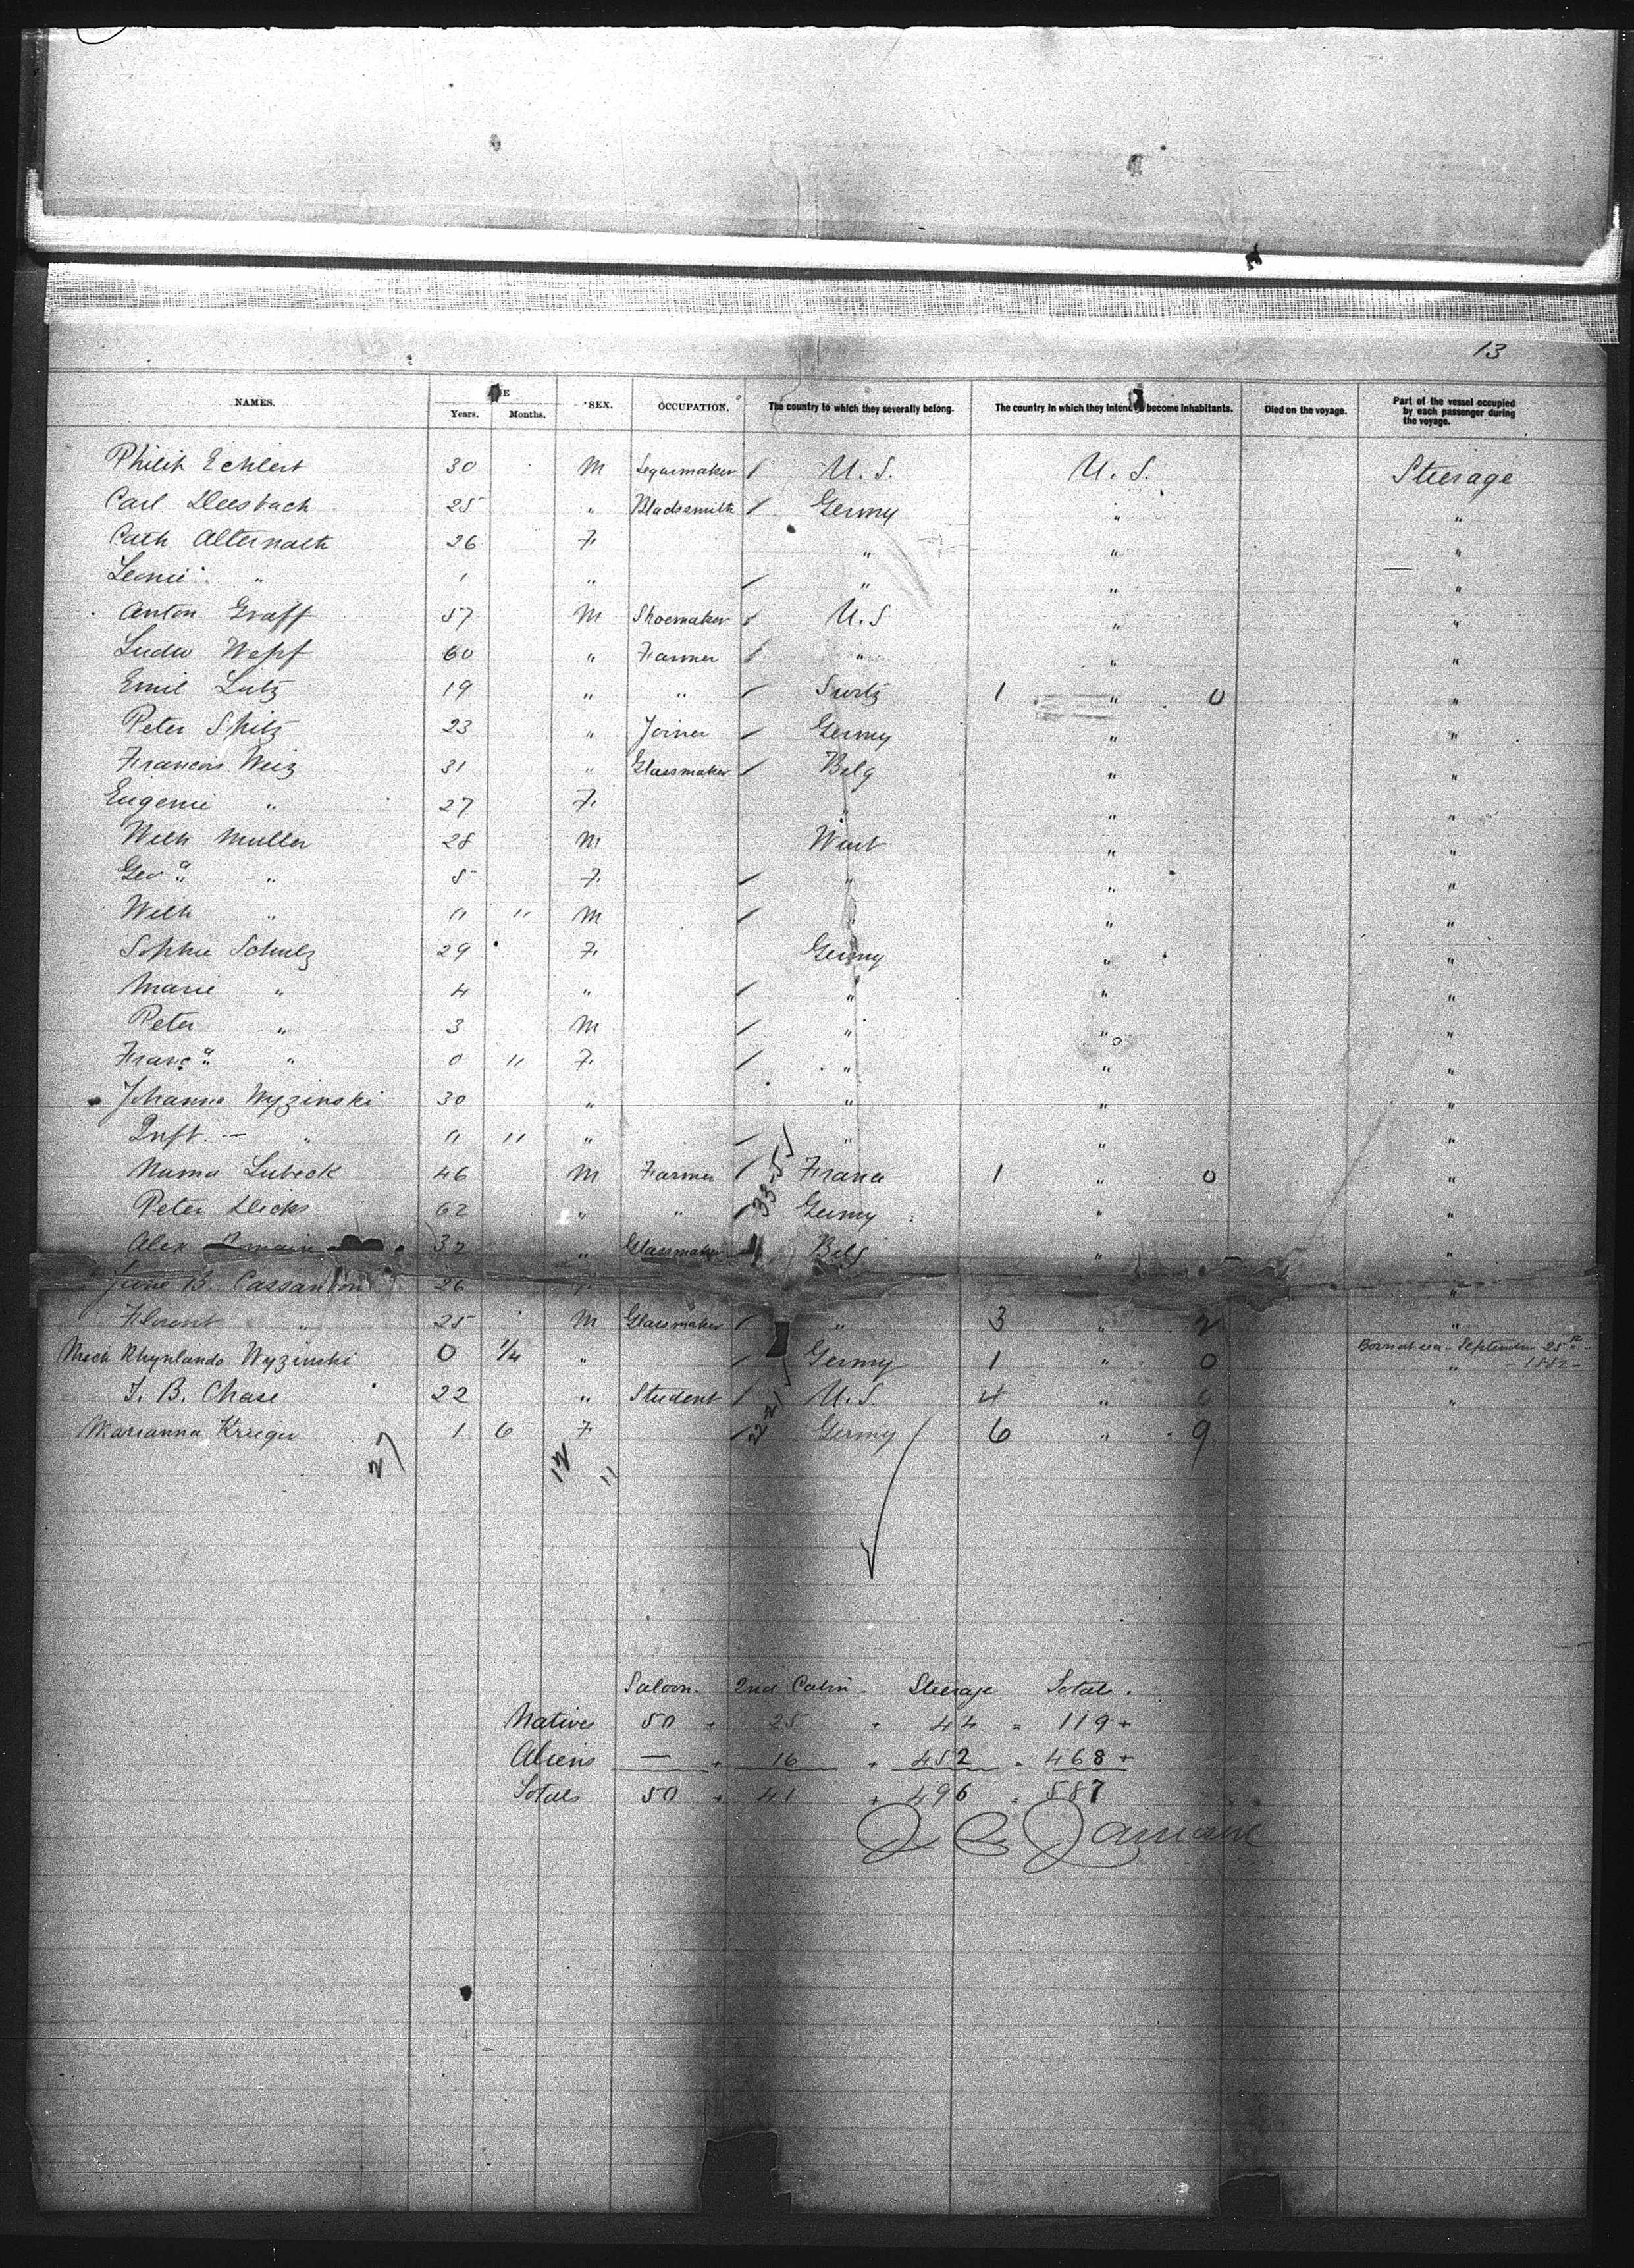 13
NAMES. AGE Years. Months. SEX. OCCUPATION. The country to which they severally belong. The country in which they intend to become inhabitants. Died on the voyage. Part of the vessel occupied by each passenger during the voyage.
Philip Echlert 30 M Segarmaker / U.S. U.S. Steerage
Carl Deesbach 25 " Blacksmith / Germy " "
Cath Alternath 26 F " " "
Leonie " 1 " / " " "
Anton Graff 57 M Shoemaker / U.S " "
Ludw Wepf 60 " Farmer / " " "
Emil Lutz 19 " " / Switz 1 " 0 "
Peter Spitz 23 " Joiner / Germy " "
Francois Weiz 31 " Glassmaker / Belg " "
Eugenie " 27 F " " "
Wilh Muller 28 M Wurt " "
Geo a " 5 F / " " "
Wilh " 0 11 M / " " "
Sophie Schulz 29 F Germy " "
Marie " 4 " / " " "
Peter " 3 M / " " "
Franc a " 0 11 F / " " "
Johanna Wyzinski 30 " " " "
Inft. — " 0 11 " / " " "
Numa Lubeck 46 M Farmer / France 1 " 0 "
Peter Decks 62 " " / Germy " "
Alex 32 " Glassmaker Belg " "
June B. Cassandon 26 "
Florent " 25 M Glassmaker / " 3 " 2 "
Mech Rhynlando Wyzinski 0 1/4 " / Germy 1 " 0 Born at sea - September 25th - 1882 -
J. B. Chase 22 " Student / U.S. 4 " 6 "
Marianna Krieger 1 6 F / Germy 6 " 9
27 12 11
33-5
22-2
Saloon. 2nd Cabin - Steerage Total.
Natives 50 + 25 + 44 = 119 +
Aliens — + 16 + 452 = 468 +
Totals 50 + 41 + 496 = 587